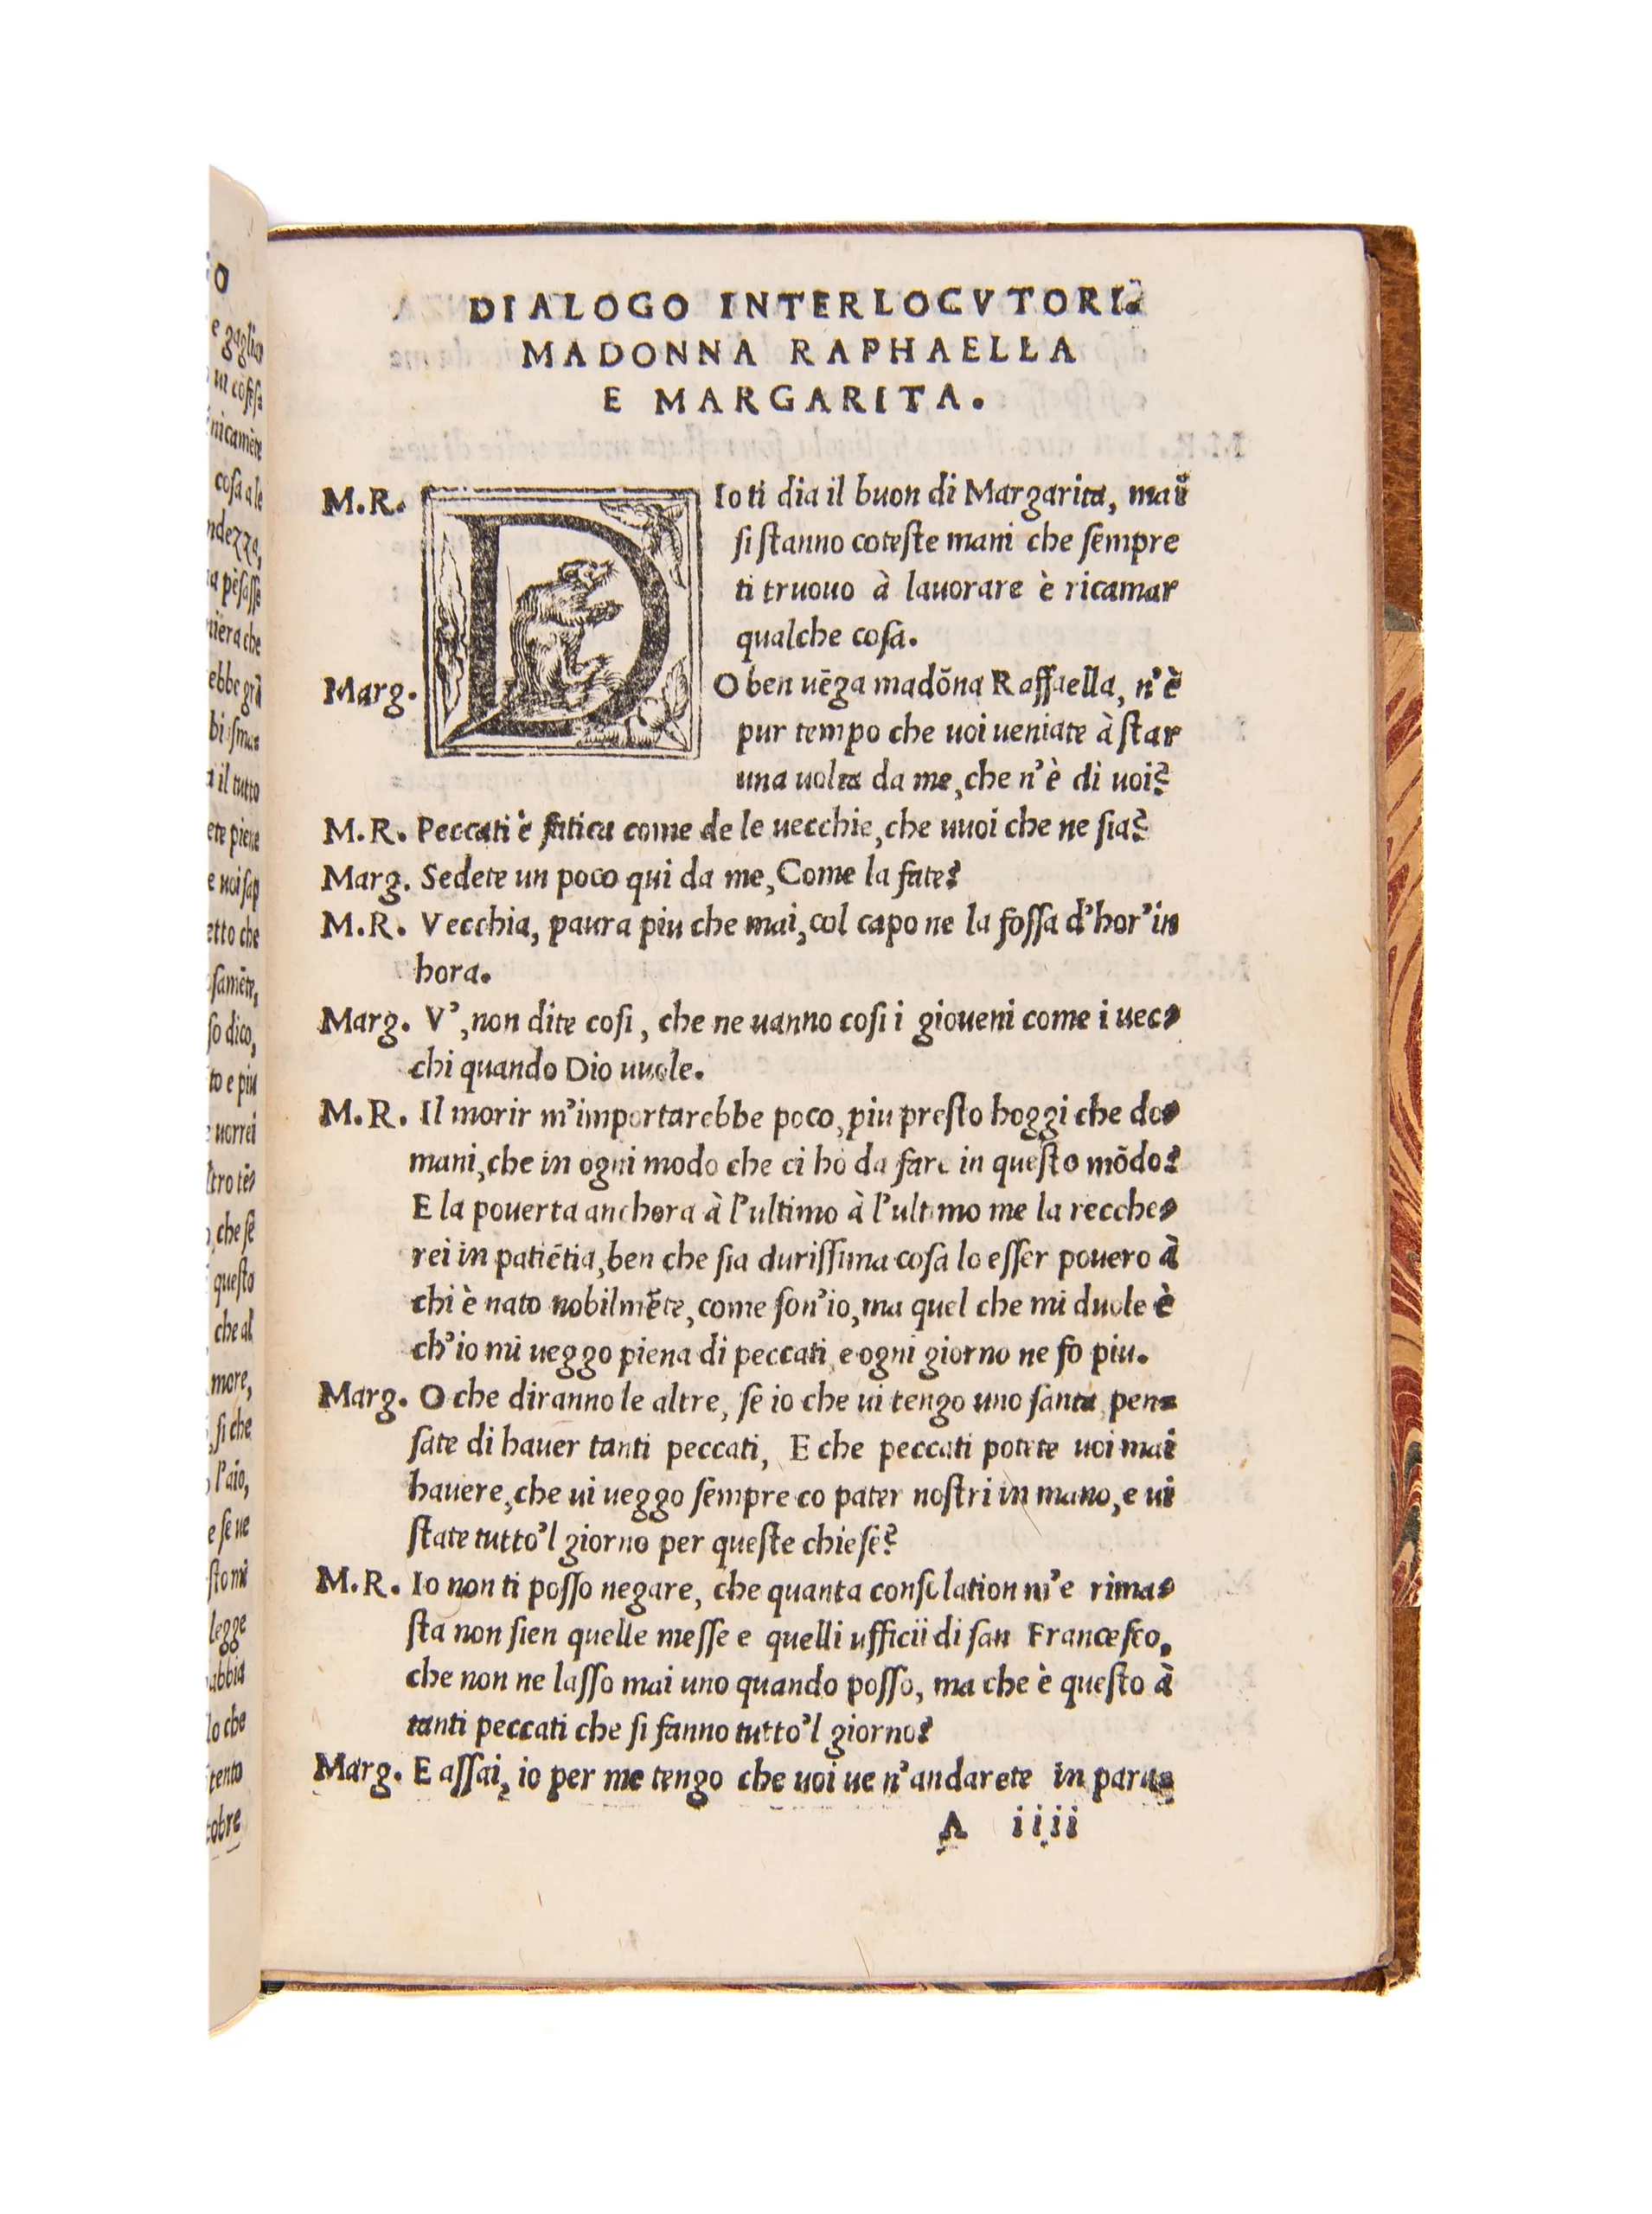 DIALOGO INTERLOCVTORI
MADONNA RAPHAELLA
E MARGARITA.
M.R. DIo ti dia il buon di Margarita, mai
si stanno coteste mani che sempre
ti truouo à lauorare è ricamar
qualche cosa.
Marg. O ben uẽga madõna Raffaella, n'è
pur tempo che uoi ueniate à star
una uolta da me, che n'è di uoi?
M.R. Peccati è fatica come de le uecchie, che uuoi che ne sia?
Marg. Sedete un poco qui da me, Come la fate?
M.R. Vecchia, paura piu che mai, col capo ne la fossa d'hor'in
hora.
Marg. V', non dite cosi, che ne uanno cosi i gioueni come i uec-
chi quando Dio uuole.
M.R. Il morir m'importarebbe poco, piu presto hoggi che do-
mani, che in ogni modo che ci hò da fare in questo mõdo?
E la pouerta anchora à l'ultimo à l'ultimo me la recche-
rei in patiẽtia, ben che sia durissima cosa lo esser pouero à
chi è nato nobilmẽte, come son'io, ma quel che mi duole è
ch'io mi ueggo piena di peccati, e ogni giorno ne fo piu.
Marg. O che diranno le altre, se io che ui tengo uno santa, pen-
sate di hauer tanti peccati, E che peccati potete uoi mai
hauere, che ui ueggo sempre co pater nostri in mano, e ui
state tutto'l giorno per queste chiese?
M.R. Io non ti posso negare, che quanta consolation m'e rima-
sta non sien quelle messe e quelli ufficii di san Francesco,
che non ne lasso mai uno quando posso, ma che è questo à
tanti peccati che si fanno tutto'l giorno?
Marg. E assai, io per me tengo che uoi ue n'andarete in para-
A iiii